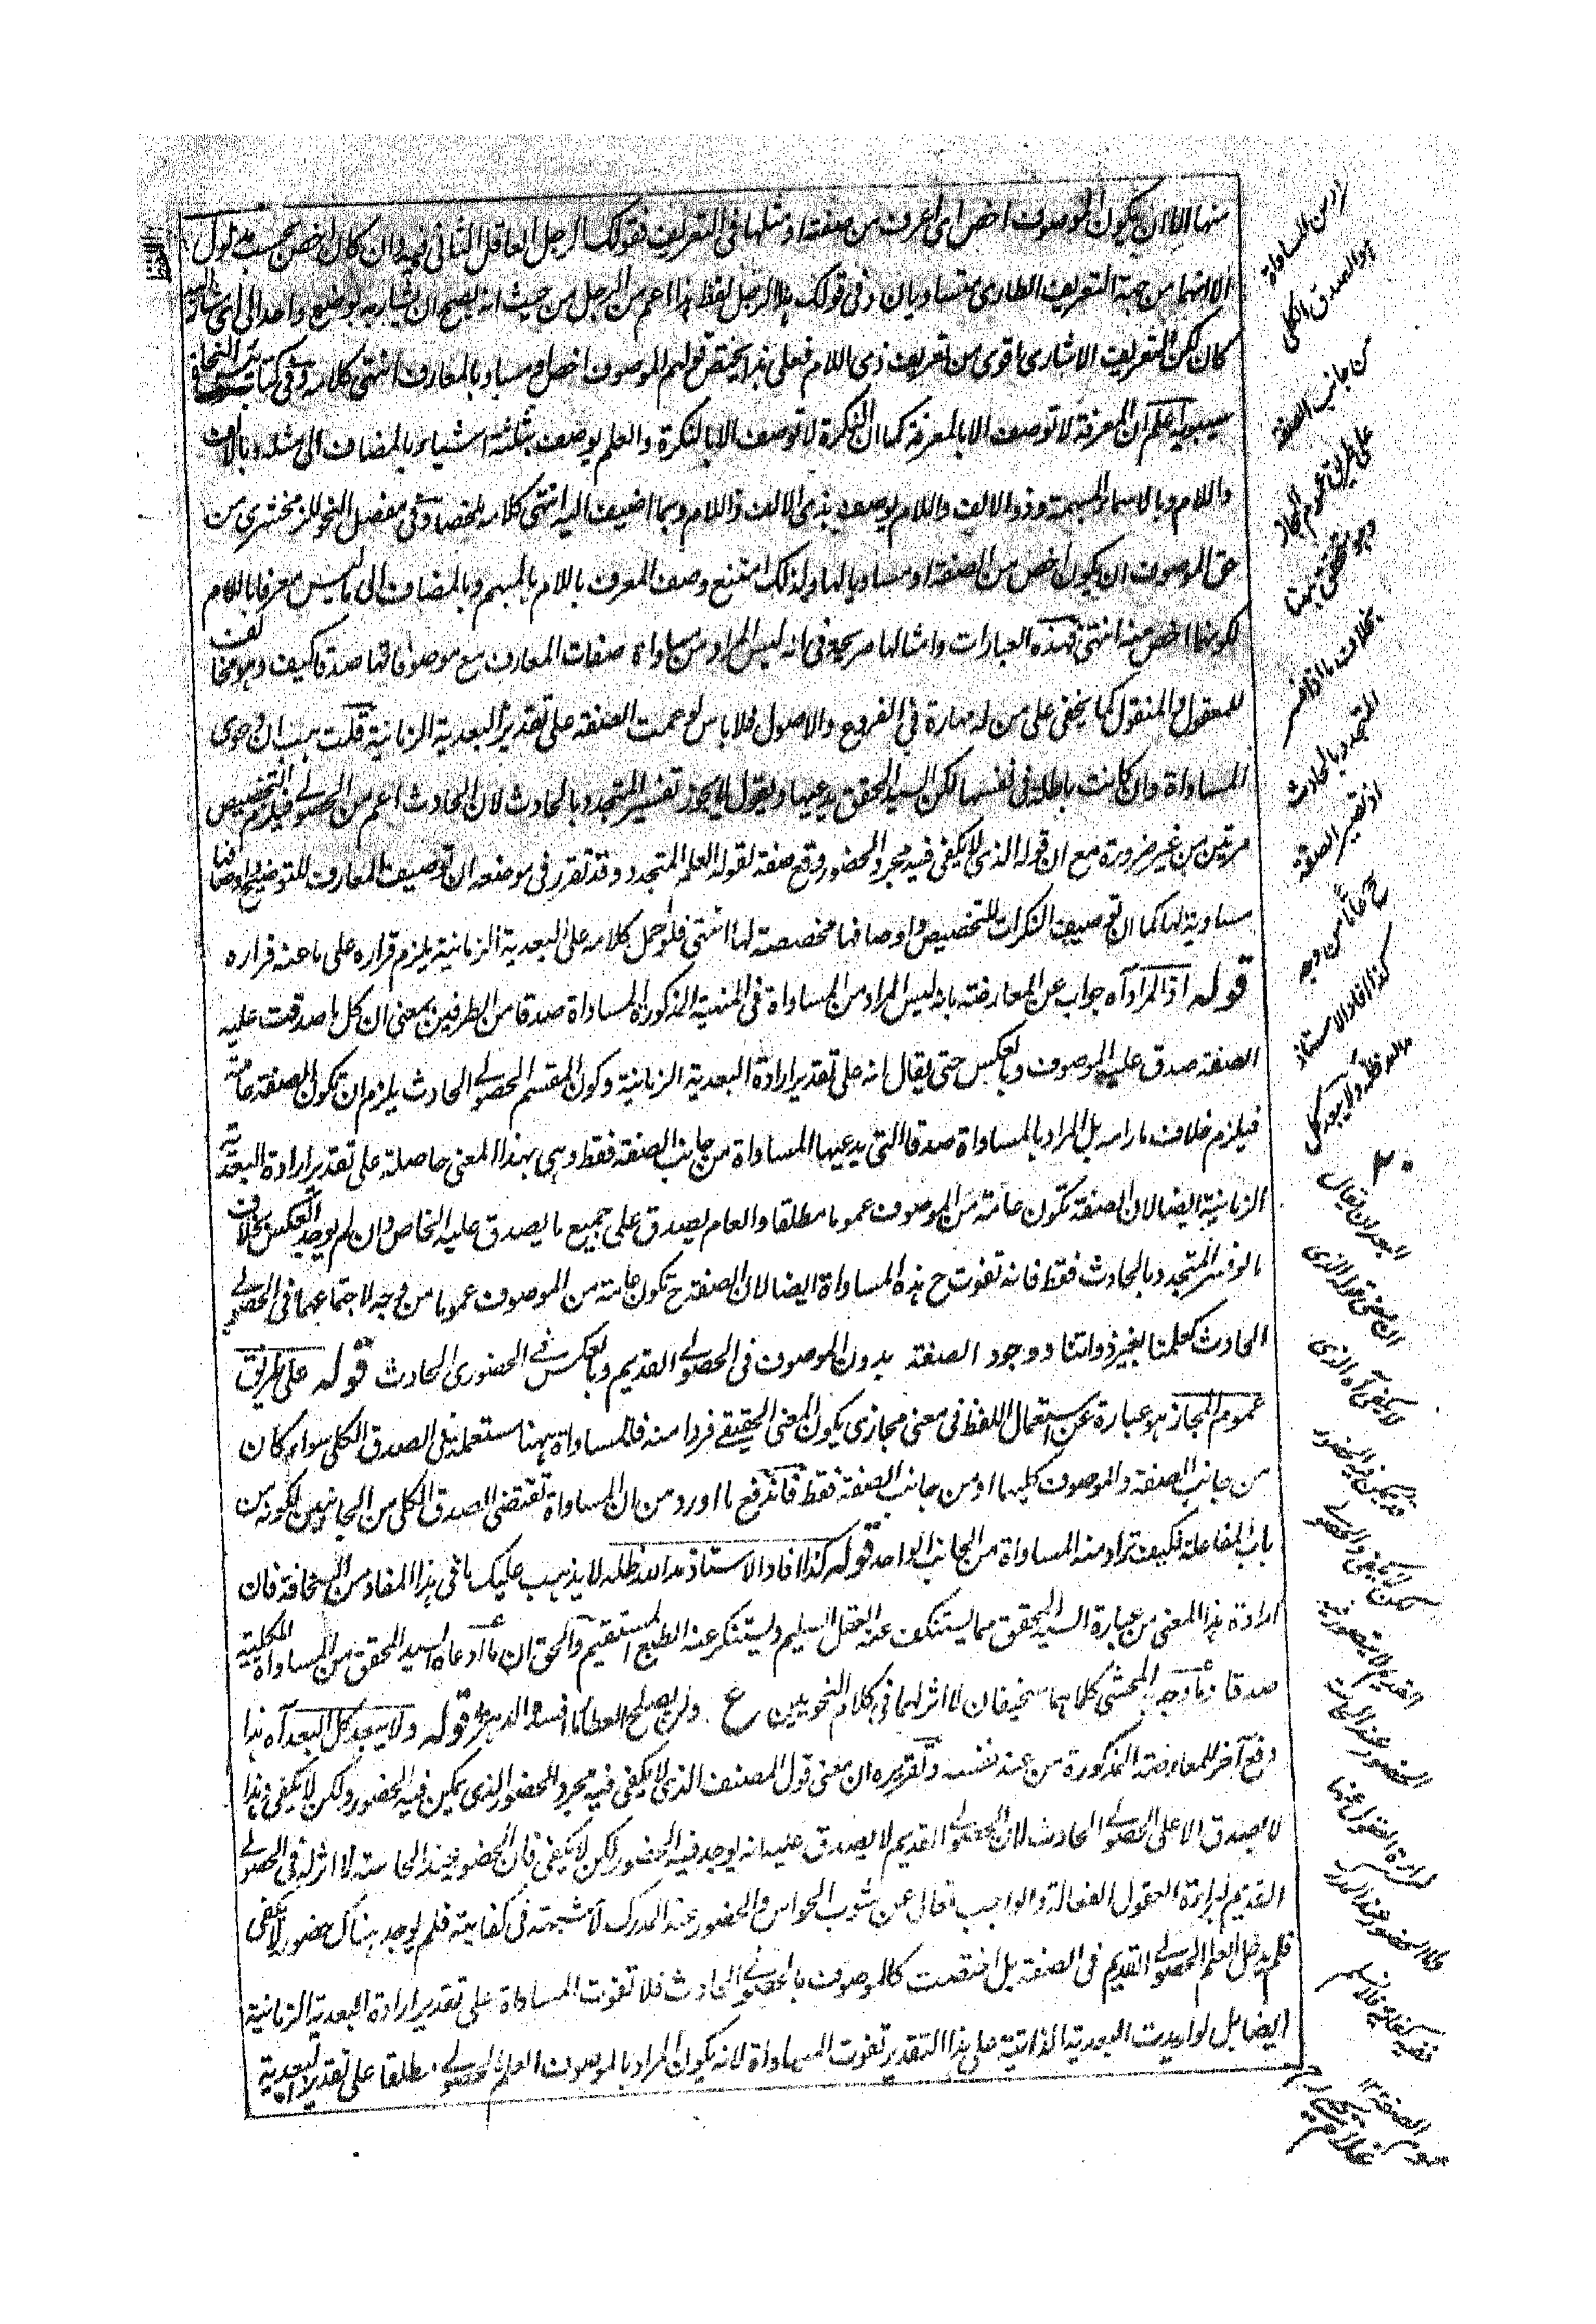 منها الا ان يكون الموصوف اخص اى اعرف من صفته او مثلها فى التعريف فقولك الرجل العاقل الثانى فيه وان كان اخص بحسب مدلول
الا انهما من جهة التعريف الطارى متساويان وفى قولك هذا الرجل لفظ هذا اعم من الرجل من حيث انه يصح ان يشار به بوضع واحد الى اى مشار اليه
كان لكن التعريف الاشارى اقوى من تعريف ذى اللام فعلى هذا يختص قولهم الموصوف اخص او مساو بالمعارف انتهى كلامه وفى كتاب
سيبويه اعلم ان المعرفة لا توصف الا بالمعرفة كما ان النكرة لا توصف الا بالنكرة والعلم يوصف بثلثة اشياء بالمضاف الى مثله وبالالف
واللام وبالاسماء المبهمة وذو الالف واللام يوصف بذى الالف واللام وبما اضيف اليه انتهى كلامه ملخصا وفى مفصل النحو للزمخشرى من
حق الموصوف ان يكون اخص من الصفة او مساويا لها ولذلك امتنع وصف المعرف باللام بالمبهم وبالمضاف الى ما ليس معرفا باللام
لكونها اخص منه انتهى فهذه العبارات وامثالها صريحة فى انه ليس المراد من مساواة صفات المعارف مع موصوفاتها صدقا كيف وهو مخالف
للمعقول والمنقول كما يخفى على من له مهارة فى الفروع والاصول فلا باس لو عمت الصفة على تقدير البعدية الزمانية قلت هب ان دعوى
المساواة وان كانت باطلة فى نفسها لكن السيد المحقق يدعيها ويقول لا يجوز تفسير المتجدد بالحادث لان الحادث اعم من الحصولى فيلزم التخصيص
مرتين من غير ضرورة مع ان قوله الذى لا يكفى فيه مجرد الحضور وقع صفة لقوله العلم المتجدد وقد تقرر فى موضعه ان توصيف المعارف للتوضيح واوصافها
مساوية لها كما ان توصيف النكرات للتخصيص واوصافها مخصصة لها انتهى فلو حمل كلامه على البعدية الزمانية يلزم قراره على ما عنه فراره
قوله اذ المراد آه جواب عن المعارضة بانه ليس المراد من المساواة فى المنهية المذكورة المساواة صدقا من الطرفين بمعنى ان كل ما صدقت عليه
الصفة صدق عليه الموصوف وبالعكس حتى يقال انه على تقدير ارادة البعدية الزمانية وكون المقسم الحصولى الحادث يلزم ان تكون الصفة عامة
فيلزم خلاف ما رامه بل المراد بالمساواة صدقا التى يدعيها المساواة من جانب الصفة فقط وهى بهذا المعنى حاصلة على تقدير ارادة البعدية
الزمانية ايضا لان الصفة تكون عامة من الموصوف عموما مطلقا والعام يصدق على جميع ما يصدق عليه الخاص وان لم يوجد العكس بخلاف
ما لو فسر المتجدد بالحادث فقط فانه تفوت ح هذه المساواة ايضا لان الصفة ح تكون عامة من الموصوف عموما من وجه لاجتماعهما فى الحصولى
الحادث كعلمنا بغير ذواتنا ووجود الصفة بدون الموصوف فى الحصولى القديم وبالعكس فى الحضورى الحادث قوله على طريق
عموم المجاز هو عبارة عن استعمال اللفظ فى معنى مجازى يكون المعنى الحقيقى فردا منه فالمساواة ههنا مستعملة فى الصدق الكلى سواء كان
من جانب الصفة والموصوف كليهما او من جانب الصفة فقط فاندفع ما اورد من ان المساواة تقتضى الصدق الكلى من الجانبين لكونه من
باب المفاعلة فكيف تراد منه المساواة من الجانب الواحد قوله كذا افاد الاستاذ مد الله ظله لا يذهب عليك ما فى هذا المفاد من السخافة فان
ارادة هذا المعنى من عبارة السيد المحقق مما يستنكف عنه العقل السليم ويستنكر عنه الطبع المستقيم والحق ان ما ادعاه السيد المحقق من المساواة الكلية
صدقا وما وجه المحشى كلاهما سخيفان لا اثر لهما فى كلام النحويين ع ولن يصلح العطار ما افسد الدهر قوله ولا يبعد كل البعد آه هذا
دفع آخر للمعارضة المذكورة من عند نفسه وتقريره ان معنى قول المصنف الذى لا يكفى فيه مجرد الحضور الذى يمكن فيه الحضور ولكن لا يكفى وهذا
لا يصدق الا على الحصولى الحادث لان الحصولى القديم لا يصدق عليه انه يوجد فيه الحضور لكن لا يكفى فان الحضور عند الحاسة لا اثر له فى الحصولى
القديم لبراءة العقول الفعالة والواجب تعالى عن شوب الحواس والحضور عند المدرك لا شبهة فى كفايته فلم يوجد هناك حضور لا يكفى
فلم يدخل العلم الحصولى القديم فى الصفة بل اختصت كالموصوف بالحصولى الحادث فلا تفوت المساواة على تقدير ارادة البعدية الزمانية
ايضا بل لو اريدت البعدية الذاتية على هذا التقدير تفوت المساواة لانه يكون المراد بالموصوف العلم الحصولى مطلقا على تقدير البعدية
اذ من المساواة
هو الصدق الكلى
من جانب الصفة
على طريق عموم المجاز
وهو متحقق ههنا
بخلاف ما اذا فسر
المتجدد بالحادث
اذ تصير الصفة
ح عاما من وجه
كذا افاد الاستاذ
مد الله ظله ولا يبعد كل
٢٠
البعد ان يقال
ان معنى قوله الذى
لا يكفى آه الذى